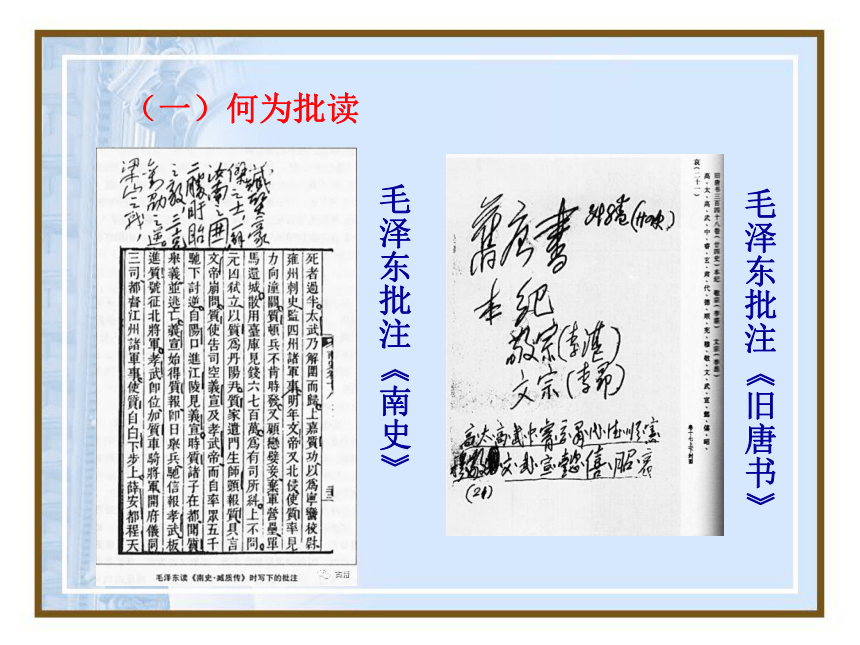 （一）何为批读
臧質豪
傑之士，一解
汝南之围
二勝盱眙
之敵，三
劭之逆
梁山之戰，
死者過半太武乃解圍而歸上嘉質功以為寧蠻校尉
雍州刺史監四州諸軍事明年文帝又北侵使質率見
力向潼關質頓兵不肯時發又顧戀嬖妾棄軍營壘單
馬還城散用臺庫見錢六七百萬為有司所糾上不問
元凶弑立以質為丹陽尹質家遣門生師顗報質具言
文帝崩問質使告司空義宣及孝武帝而自率眾五千
馳下討逆自陽口進江陵見義宣時質諸子在都聞質
舉義並逃亡義宣始得質報即日舉兵馳信報孝武板
進質號征北將軍孝武即位加質車騎將軍開府儀同
三司都督江州諸軍事使質自白下步上薛安都程天
毛泽东读《南史·臧质传》时写下的批注
毛泽东批注《南史》
舊唐書
本纪
敬宗(李湛)
文宗(李昂)
(21)
旧唐书三百四十八卷（廿四史）本纪 敬宗（李湛） 文宗（李昂）
高、太、高、武、中、睿、玄、肃、代、德、顺、宪、穆、敬、文、武、宣、懿、僖、昭、
哀（二十一）
卷十七上下封面
毛泽东批注《旧唐书》